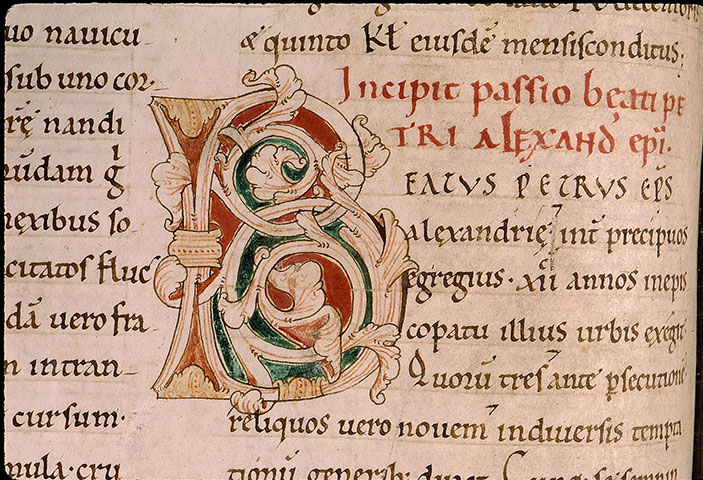 uo nauicu
sub uno cor
rę nandi
rūdam g
nexibus so
citatos fluc
dā uero fra
n intran
cursum·
mula· cru
& quinto Kł eiusdē mensis conditus;
Incipit passio beati pe
TRI ALEXAND epi.
BEATUS PETRUS EPS
alexandrię int precipuos
egregius· xii annos inepis
copatu illius urbis exegit
Quorū tres ante psecutionē
reliquos uero nouem indiuersis tempta
tionū generib;